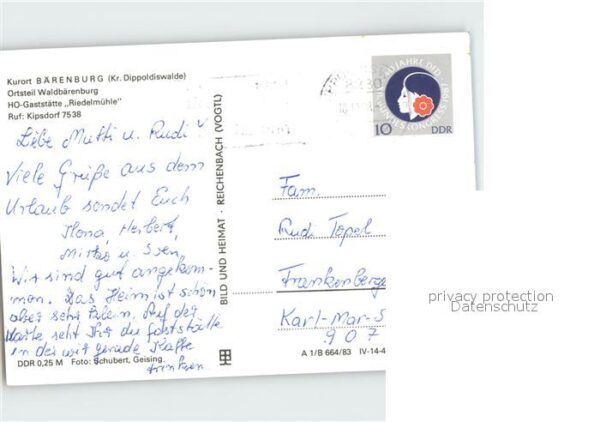 Kurort BÄRENBURG (Kr. Dippoldiswalde)
Ortsteil Waldbärenburg
HO-Gaststätte „Riedelmühle"
Ruf: Kipsdorf 7538
Liebe Mutti u. Rudi
Viele Grüße aus dem
Urlaub sendet Euch
Ilona, Herbert,
u. Sven,
Wir sind gut angekom-
men. Das Heim ist schön
aber sehr klein. Auf der
Karte seht Ihr die Gaststätte
in der wir gerade Kaffe
trinken.
DDR 0,25 M Foto: Schubert, Geising.
BILD UND HEIMAT · REICHENBACH (VOGTL)
10 DDR
Fam.
Rudi Topel
Frankenberge
Karl-Mar-S
907
A 1/B 664/83 IV-14-4
privacy protection
Datenschutz